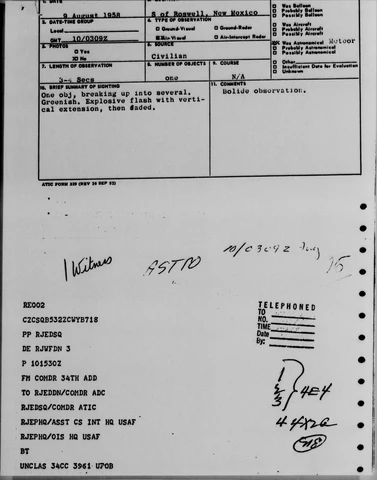 1. DATE
9 August 1958
2. LOCATION
E of Roswell, New Mexico
3. DATE-TIME GROUP
Local
GMT 10/0309Z
4. TYPE OF OBSERVATION
Ground-Visual
Ground-Radar
Air-Visual
Air-Intercept Radar
5. PHOTOS
Yes
No
6. SOURCE
Civilian
7. LENGTH OF OBSERVATION
8. NUMBER OF OBJECTS
one
9. COURSE
N/A
Was Balloon
Probably Balloon
Possibly Balloon
Was Aircraft
Probably Aircraft
Possibly Aircraft
Was Astronomical Meteor
Probably Astronomical
Possibly Astronomical
Other
Insufficient Data for Evaluation
Unknown
3-4 Secs
10. BRIEF SUMMARY OF SIGHTING
One obj, breaking up into several.
Greenish, Explosive flash with verti-
cal extension, then faded.
11. COMMENTS
Bolide observation.
ATIC FORM 329 (REV 26 SEP 52)
10/0309Z Aug
1 Witness
ASTRO
15
RE002
CZCSQB5322CWYB718
PP RJEDSQ
DE RJWFDN 3
P 101530Z
FM COMDR 34TH ADD
TO RJEDDN/COMDR ADC
RJEDSQ/COMDR ATIC
RJEPHQ/ASST CS INT HQ USAF
RJEPHQ/OIS HQ USAF
BT
UNCLAS 34CC 3961 U7OB
TELEPHONED
TO
NO.
TIME
Date
By:
1
2
3
4E4
4X2a